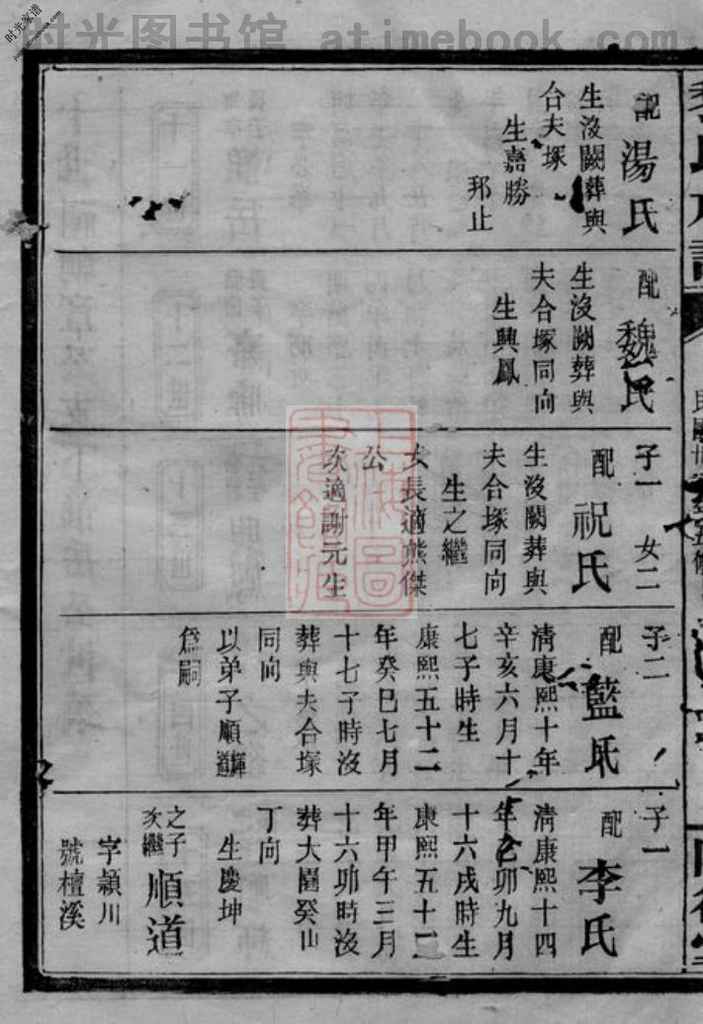 时光图书馆 - atimebook.com
时光家谱
配湯氏
生沒闕葬與
台夫塚
生嘉勝
邦止
配魏氏
生沒闕葬與
夫合塚同向
生興鳳
子一 女二
配祝氏
生沒闕葬與
夫合塚同向
生之繼
女長適熊傑
公
次適謝元生
子二
配藍氏
清康熙十年
辛亥六月十
七子時生
康熙五十二
年癸巳七月
十七子時沒
葬與夫合塚
同向
以弟子順輝道
爲嗣
子一
配李氏
清康熙十四
年乙卯九月
十六戌時生
康熙五十三
年甲午三月
十六卯時沒
葬大園癸山
丁向
生慶坤
之子次繼順道
字穎川
號檀溪